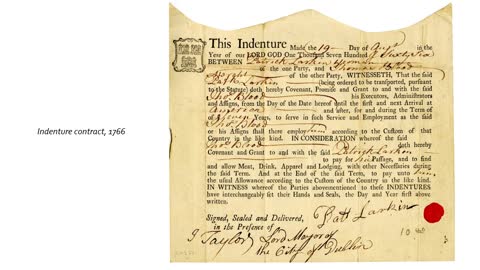 Indenture contract, 1766
This Indenture Made the 19 Day of in the
Year of our LORD GOD One Thousand Seven Hundred & Sixty Six
BETWEEN Patrick Larkin Yeoman
of the one Party, and Thomas Blood
of the other Party, WITNESSETH, That the said
Patk Larkin (being ordered to be transported, pursuant
to the Statute) doth hereby Covenant, Promise and Grant to and with the said
Thos Blood his Executors, Administrators
and Assigns, from the Day of the Date hereof until the first and next Arrival in
America and after, for and during the Term of
Seven Years, to serve in such Service and Employment as the said
Thos Blood
or his Assigns shall there employ him according to the Custom of that
Country in the like kind. IN CONSIDERATION whereof the said
Thos Blood doth hereby
Covenant and Grant to and with the said Patrick Larkin
to pay for his Passage, and to find
and allow Meat, Drink, Apparel and Lodging, with other Necessaries during
the said Term. And at the End of the said Term, to pay unto him
the usual Allowance according to the Custom of the Country in the like kind.
IN WITNESS whereof the Parties abovementioned to these INDENTURES
have interchangeably set their Hands and Seals, the Day and Year first above
written.
Signed, Sealed and Delivered,
in the Presence of
Patt Larkin
J Taylor Lord Mayor of
the City of Dublin